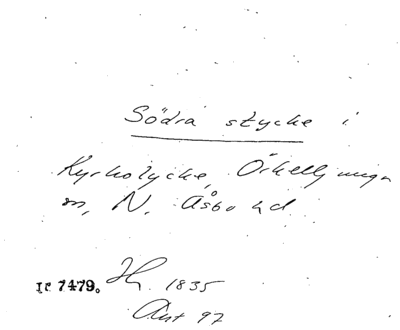 Södra stycke i
Kyrkolycke, Örkelljunga
sn, N. Åsbo hd
Ie 7479. 1835
Akt 97